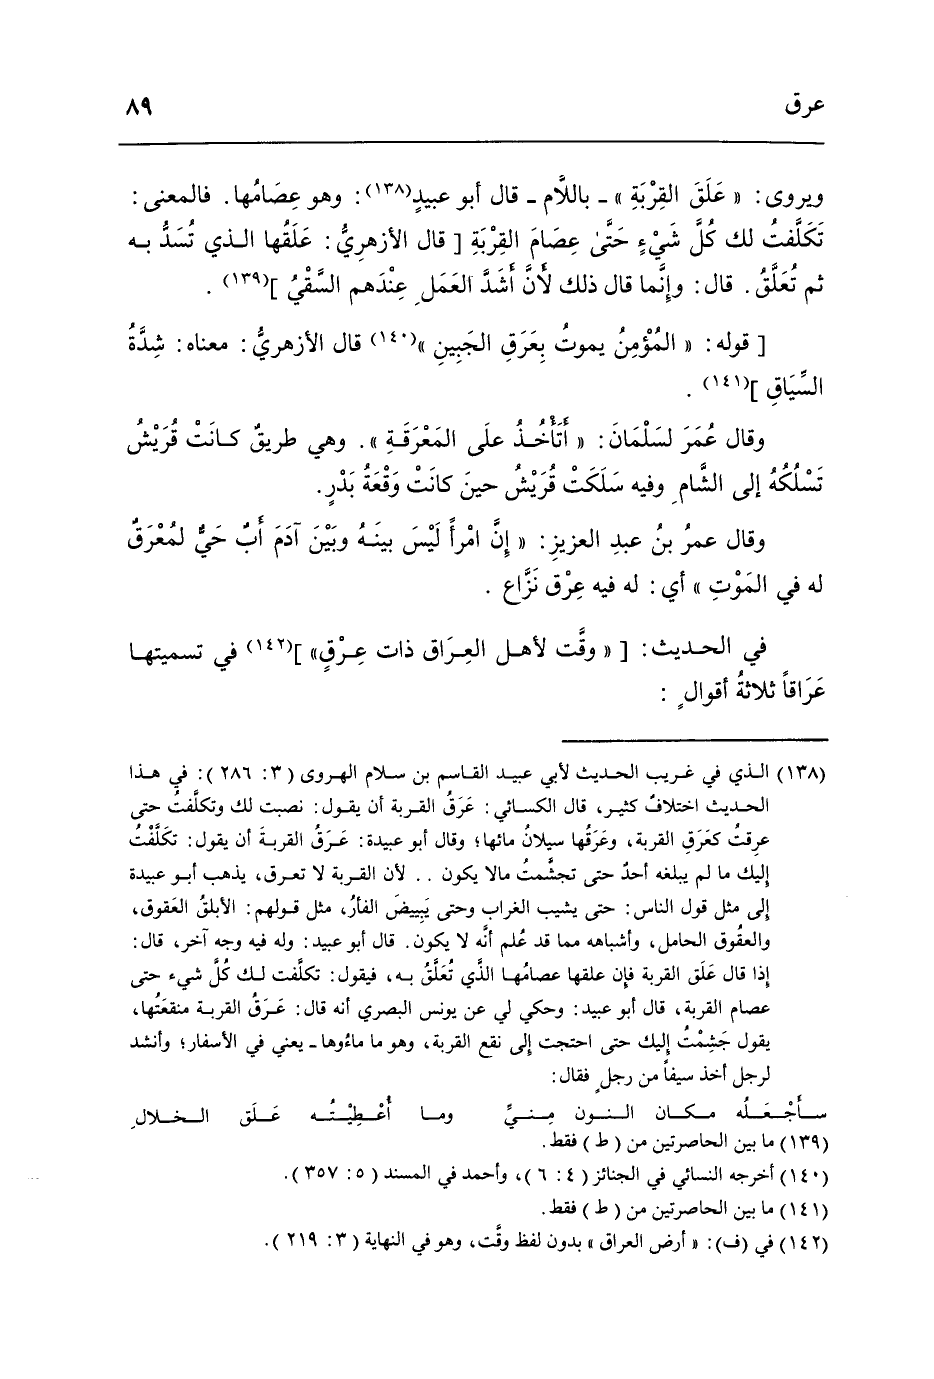 عرق
٨٩
ويروى: « عَلَقَ القِرْبَةِ » ـ باللَّام ـ قال أبو عبيدٍ(١٣٨): وهو عِصَامُها. فالمعنى:
تَكَلَّفتُ لك كُلَّ شَيْءٍ حَتَّىٰ عِصَامَ القِرْبَةِ [ قال الأزهريُّ: عَلَقُها الذي تُسَدُّ به
ثم تُعَلَّقُ. قال: وإِنَّما قال ذلك لأَنَّ أَشَدَّ العَمَلِ عِنْدَهم السَّقْيُ ](١٣٩) .
[ قوله: « المُؤْمِنُ يموتُ بِعَرَقِ الجَبِينِ »(١٤٠) قال الأزهريُّ: معناه: شِدَّةُ
السِّيَاقِ ](١٤١) .
وقال عُمَرَ لسَلْمَانَ: « أَتَأْخُذُ علَى المَعْرَقَةِ ». وهي طريقٌ كانَتْ قُرَيْشُ
تَسْلُكُهُ إلى الشَّامِ وفيه سَلَكَتْ قُرَيْشُ حينَ كانَتْ وَقْعَةُ بَدْرٍ.
وقال عمرُ بنُ عبدِ العزيزِ: « إِنَّ امْرأً لَيْسَ بينَهُ وبَيْنَ آدَمَ أَبٌ حَيٌّ لمُعْرَقٌ
له في المَوْتِ » أي: له فيه عِرْق نَزَّاع .
في الحديث: [ « وقَّت لأهل العِرَاق ذات عِرْقٍ» ](١٤٢) في تسميتها
عَرَاقاً ثلاثةُ أقوالٍ :
(١٣٨) الذي في غريب الحديث لأبي عبيد القاسم بن سلام الهروى ( ٣: ٢٨٦ ): في هذا
الحديث اختلافٌ كثير، قال الكسائي: عَرَقُ القربة أن يقول: نصبت لك وتكلَّفتُ حتى
عرِقتُ كعَرَقِ القربة، وعَرَقُها سيلانُ مائها؛ وقال أبو عبيدة: عَرَقُ القربةَ أن يقول: تكَلَّفْتُ
إليك ما لم يبلغه أحدٌ حتى تجشَّمتُ مالا يكون .. لأن القربة لا تعرق، يذهب أبو عبيدة
إلى مثل قول الناس: حتى يشيب الغراب وحتى يَبِيضَ الفأرُ، مثل قولهم: الأبلقُ العَقوق،
والعقُوق الحامل، وأشباهه مما قد عُلم أنَّه لا يكون. قال أبو عبيد: وله فيه وجه آخر، قال:
إذا قال عَلَق القربة فإن علقها عصامُها الذَّي تُعَلَّقُ به، فيقول: تكلَّفت لك كُلَّ شيء حتى
عصام القربة، قال أبو عبيد: وحكي لي عن يونس البصري أنه قال: عَرَقُ القربة منقعَتُها،
يقول جَشِمْتُ إليك حتى احتجت إلى نقع القربة، وهو ما ماءُوها ـ يعني في الأسفار؛ وأنشد
لرجل أخذ سيفاً من رجلٍ فقال:
سأَجْعَلُه مكان النون مِنيِّ وما أُعْطِيْتُه عَلَق الخلالِ
(١٣٩) ما بين الحاصرتين من ( ط ) فقط.
(١٤٠) أخرجه النسائي في الجنائز ( ٤: ٦ )، وأحمد في المسند ( ٥: ٣٥٧ ).
(١٤١) ما بين الحاصرتين من ( ط ) فقط.
(١٤٢) في (ف): « أرض العراق » بدون لفظ وقَّت، وهو في النهاية ( ٣: ٢١٩ ).